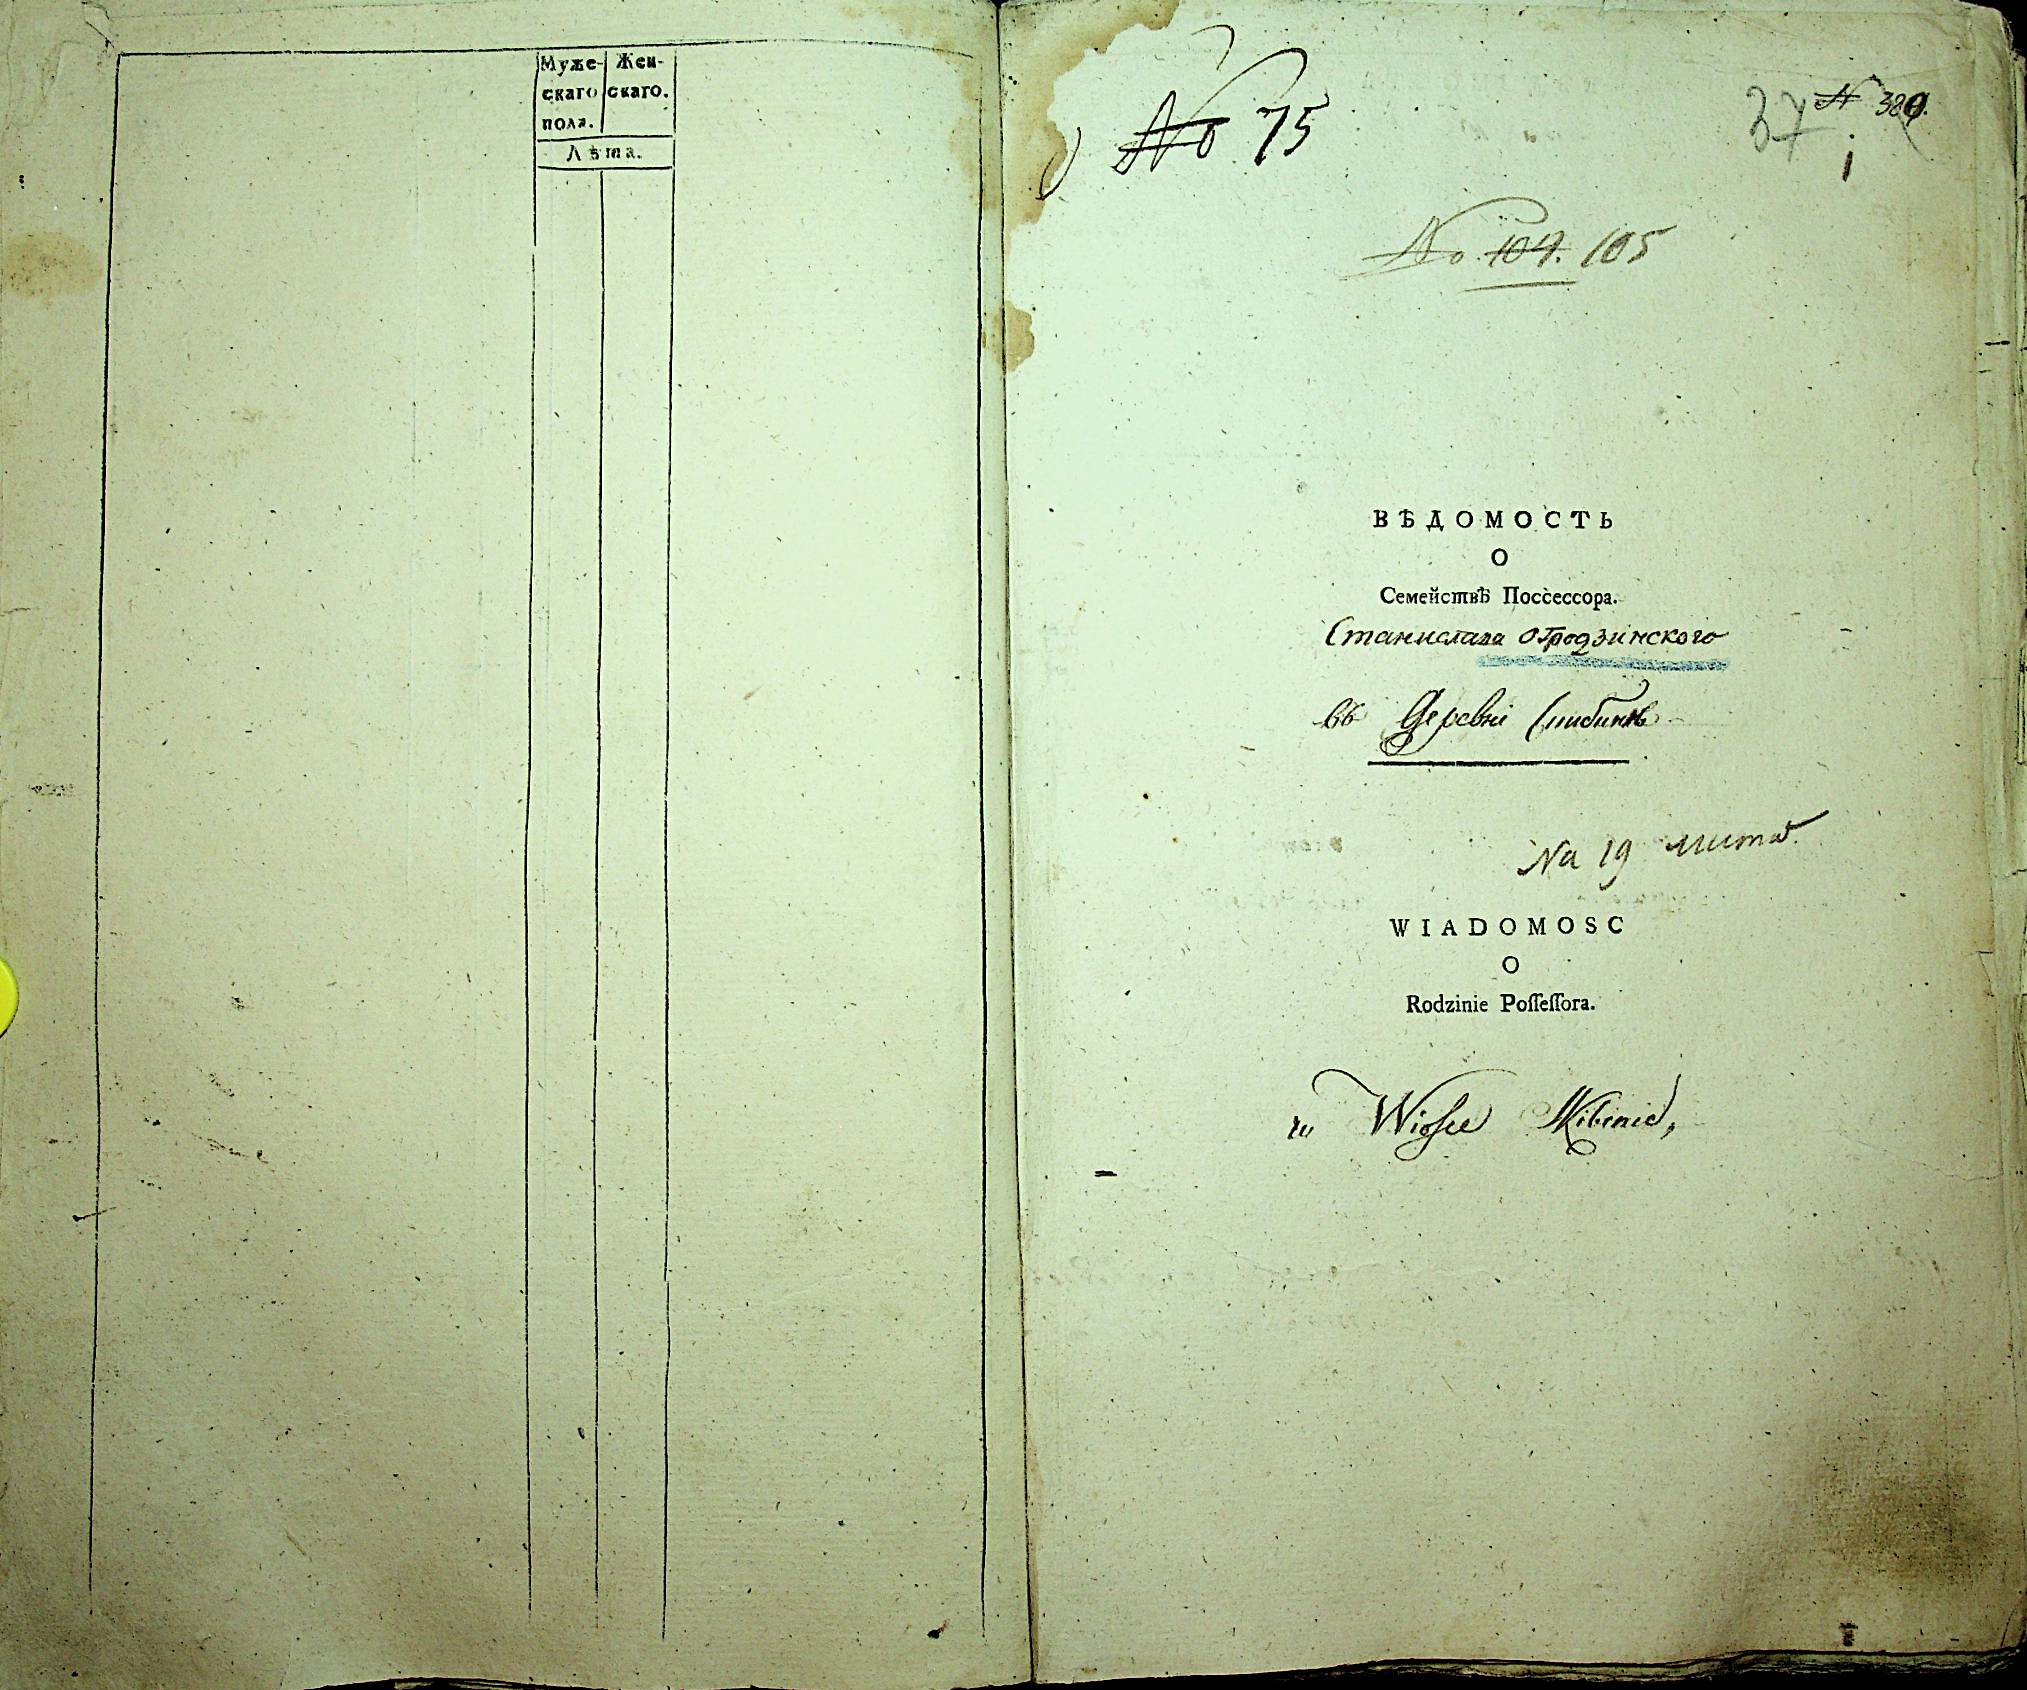 Муже- Жен-
скаго скаго.
пола.
Лѣта.
No 75
37 N 380.
1
No 104. 105
ВѢДОМОСТЬ
О
Семействѣ Поссессора.
Станислава Огродзинского
въ Деревнѣ Скибинѣ
На 19 листа.
WIADOMOSC
O
Rodzinie Poſſeſſora.
w Wiosce Skibinie,